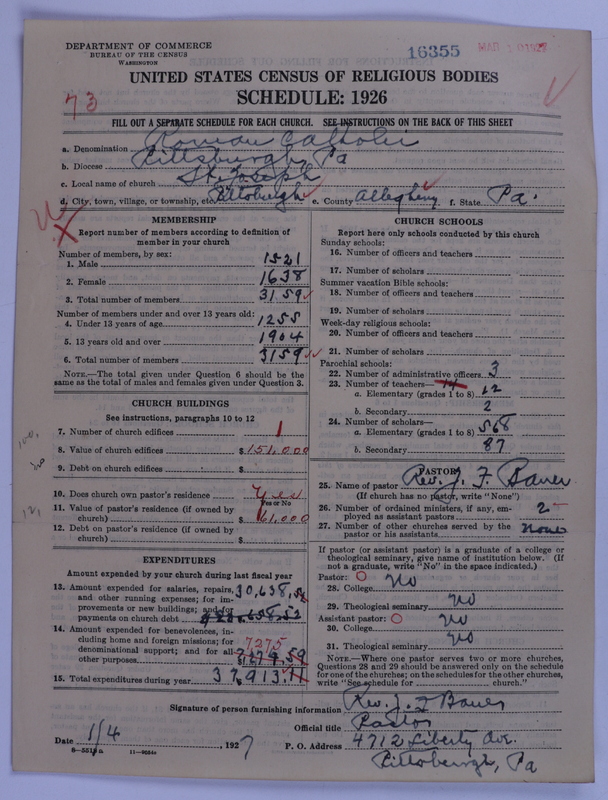 DEPARTMENT OF COMMERCE
BUREAU OF THE CENSUS
WASHINGTON
16355
UNITED STATES CENSUS OF RELIGIOUS BODIES
SCHEDULE: 1926
73
FILL OUT A SEPARATE SCHEDULE FOR EACH CHURCH. SEE INSTRUCTIONS ON THE BACK OF THIS SHEET
a. Denomination Roman Catholic
b. Diocese Pittsburgh, Pa
c. Local name of church St. Joseph
d. City, town, village, or township, etc. Pittsburgh e. County Allegheny f. State Pa.
MEMBERSHIP
Report number of members according to definition of member in your church
Number of members, by sex:
1. Male 1521
2. Female 1638
3. Total number of members 3159
Number of members under and over 13 years old:
4. Under 13 years of age 1255
5. 13 years old and over 1904
6. Total number of members 3159
NOTE.—The total given under Question 6 should be the same as the total of males and females given under Question 3.
CHURCH BUILDINGS
See instructions, paragraphs 10 to 12
7. Number of church edifices 1
8. Value of church edifices $151,000
9. Debt on church edifices $
10. Does church own pastor's residence Yes
Yes or No
11. Value of pastor's residence (if owned by church) $61,000
12. Debt on pastor's residence (if owned by church) $
EXPENDITURES
Amount expended by your church during last fiscal year
13. Amount expended for salaries, repairs, and other running expenses; for improvements or new buildings; and for payments on church debt 30,638,52
14. Amount expended for benevolences, including home and foreign missions; for denominational support; and for all other purposes. 7275
15. Total expenditures during year 37,913.11
CHURCH SCHOOLS
Report here only schools conducted by this church
Sunday schools:
16. Number of officers and teachers
17. Number of scholars
Summer vacation Bible schools:
18. Number of officers and teachers
19. Number of scholars
Week-day religious schools:
20. Number of officers and teachers
21. Number of scholars
Parochial schools:
22. Number of administrative officers 3
23. Number of teachers— 14
a. Elementary (grades 1 to 8) 12
b. Secondary 2
24. Number of scholars—
a. Elementary (grades 1 to 8) 568
b. Secondary 87
PASTOR
25. Name of pastor Rev. J. F. Bauer
(If church has no pastor, write "None")
26. Number of ordained ministers, if any, employed as assistant pastors 2
27. Number of other churches served by the pastor or his assistants none
If pastor (or assistant pastor) is a graduate of a college or theological seminary, give name of institution below. (If not a graduate, write "No" in the space indicated.)
Pastor:
28. College No
29. Theological seminary no
Assistant pastor:
30. College no
31. Theological seminary no
NOTE.—Where one pastor serves two or more churches, Questions 28 and 29 should be answered only on the schedule for one of the churches; on the schedules for the other churches, write "See schedule for church."
Signature of person furnishing information Rev. J. F. Bauer
Official title Pastor
Date 1/4, 1927 P. O. Address 4712 Liberty Ave.
Pittsburgh, Pa